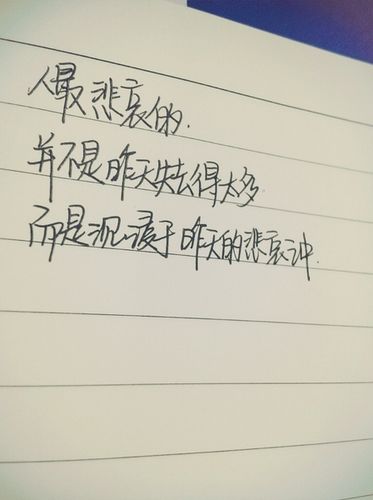 人最悲哀的.
并不是昨天失去得太多.
而是沉浸于昨天的悲哀冲.